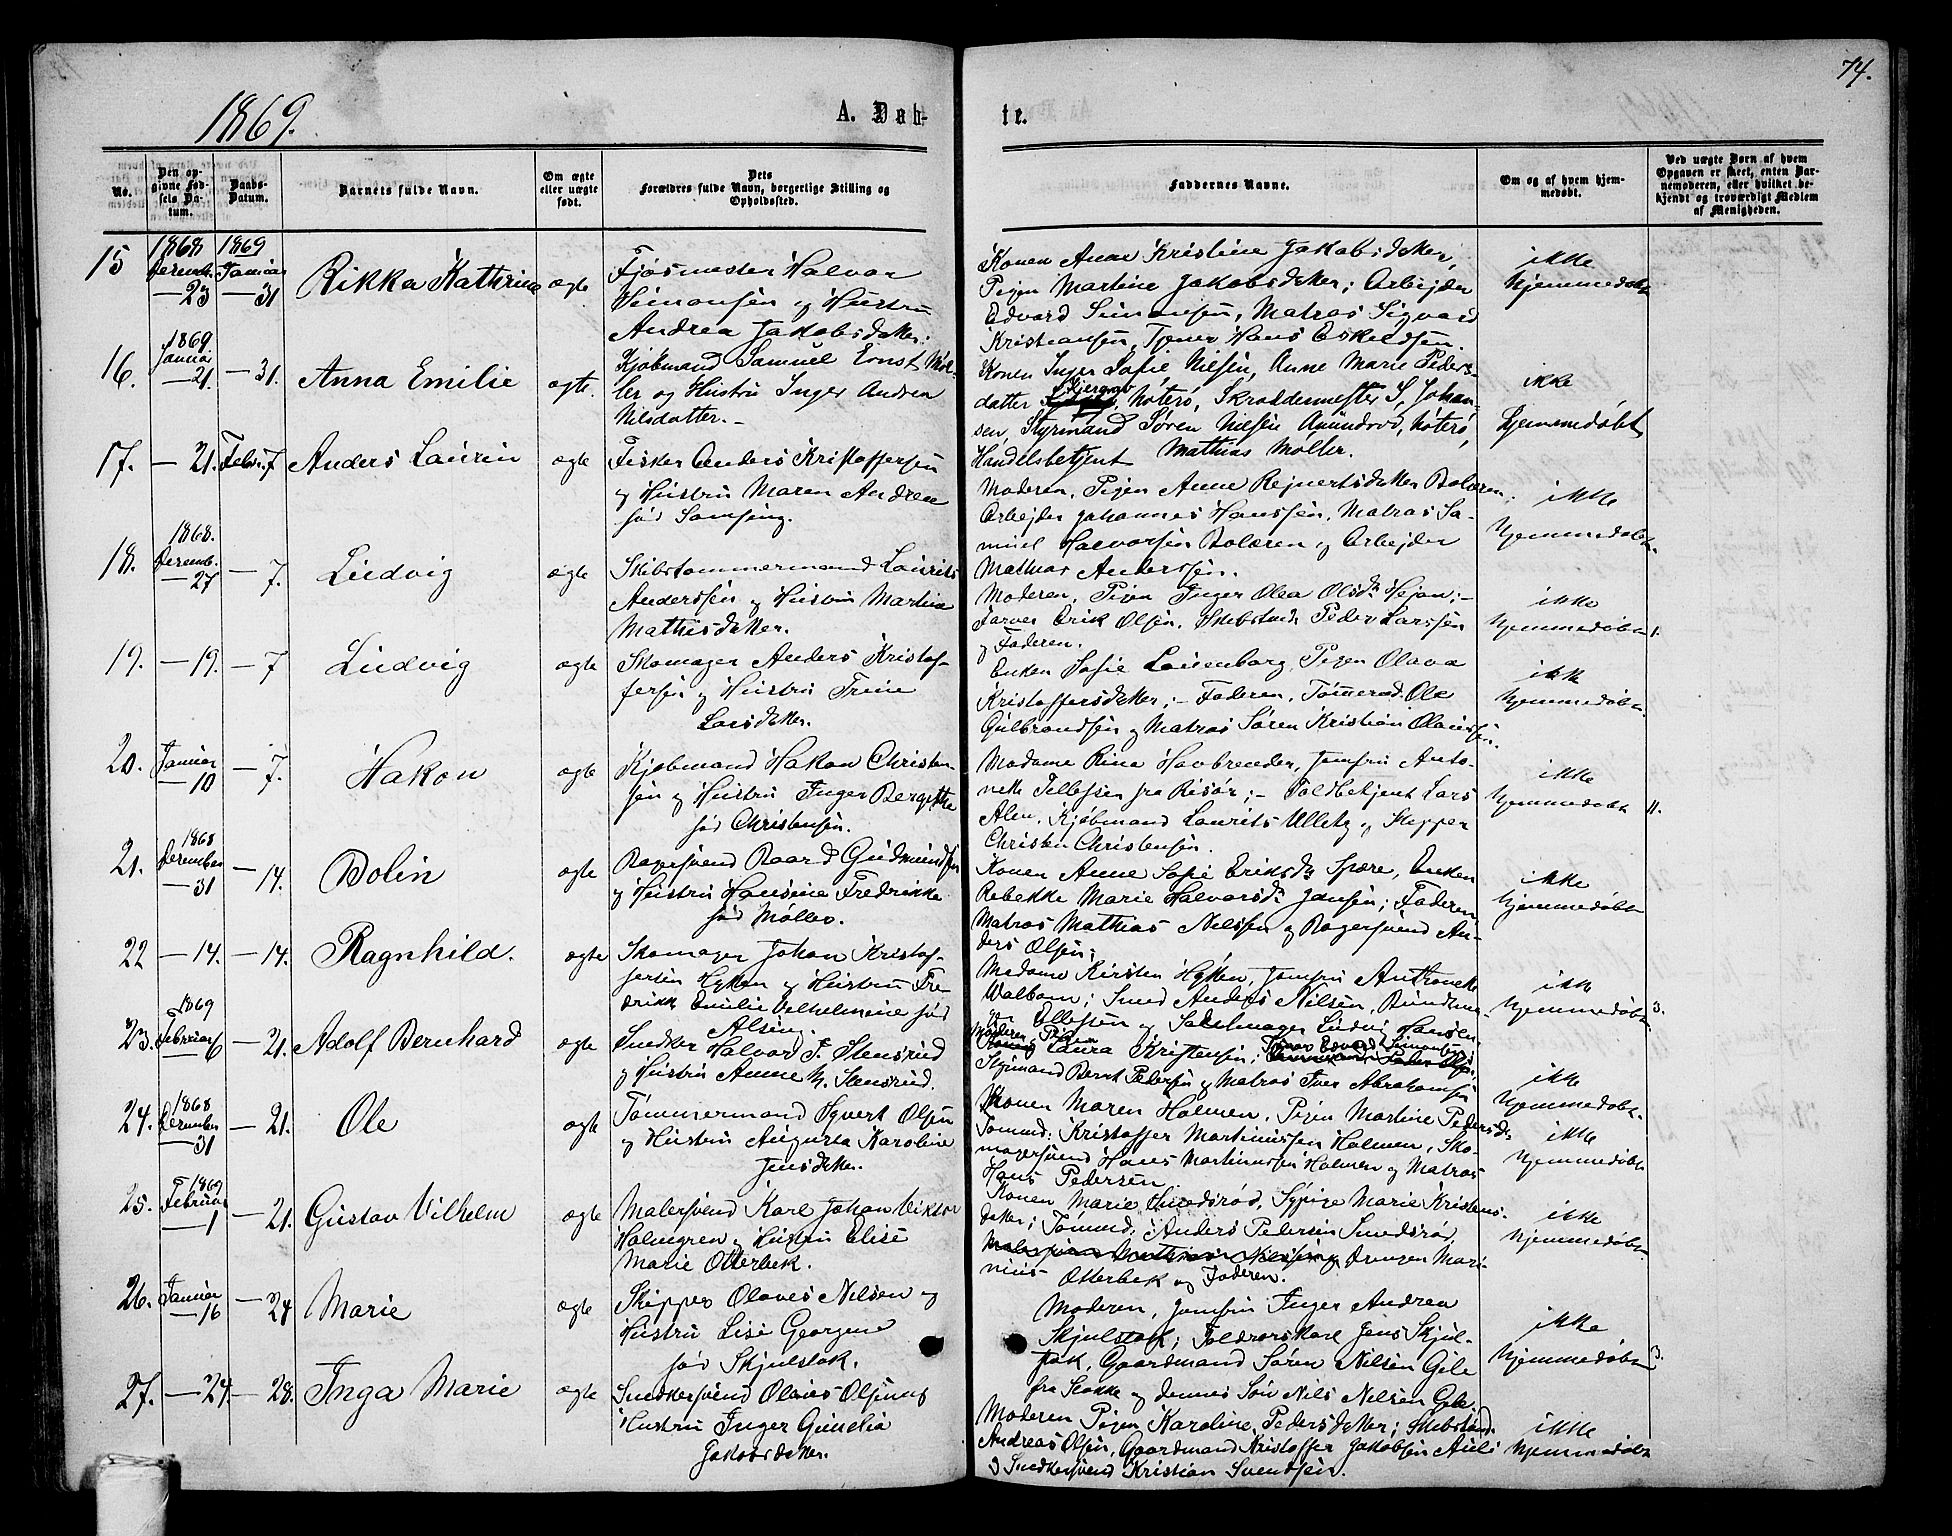 74.
1869.
A. Døb-
te.
No.
Den opgivne Fødsels Datum.
Daabs-Datum.
Barnets fulde Navn.
Om ægte eller uægte født.
Dets Forældres fulde Navn, borgerlige Stilling og Opholdssted.
Faddernes Navne.
Om og af hvem hjemmedøbt.
Ved uægte Børn af hvem Opgaven er skeet, enten Barnemoderen, eller hvilket bekjendt og troværdigt Medlem af Menigheden.
15 1868 Decemb. — 23 1869 Januar — 31 Rikka Kathrine ægte
Fjøsmester Halvor
Simonsen og Hustru
Andrea Jakobsdatter.
Konen Anne Kristine Jakobsdatter,
Pigen Martine Jakobsdatter; Arbejder
Edvard Simonsen, Matros Sigvard
Kristiansen, Tjener Hans Eskeldsen.
ikke
hjemmedøbt
16. 1869 Januar — 21. — 31. Anna Emilie ægte.
Kjøbmand Samuel Ernst Møl-
ler og Hustru Inger Andrea
Nilsdatter.
Konen Inger Sofie Nilsen, Anne Marie Peders-
datter Kjergaas, Nøterø, Skræddermester S. Johan-
sen, Styrmand Søren Nilsen Amundrød, Nøterø,
Handelsbetjent Mathias Møller.
ikke
hjemmedøbt
17. — 21. Febr. 7 Anders Laurin ægte
Fisker Anders Kristoffersen
og Hustru Maren Andrea
fød Samsing.
Moderen, Pigen Anne Rejnertsdatter Bolæren;
Arbejder Johannes Hanssen, Matros Sa-
muel Halvorsen Bolæren og Arbejder
Mathias Anderssen.
ikke
hjemmedøbt.
18. 1868. Decemb. — 27 — 7. Ludvig ægte
Skibstømmermand Laurits
Anderssen og Hustru Martine
Mathisdatter.
Moderen, Pigen Inger Olea Olsdr
Farver Erik Olsen, Peder Larssen
og Faderen.
ikke
hjemmedøbt.
19. — 19. — 7 Ludvig ægte
Skomager Anders Kristof-
fersen og Hustru Trine
Larsdatter.
Enken Sofie Lauenborg, Pigen Olava
Kristoffersdatter; — Faderen, Ole
Gulbrandsen og Matros Søren Kristian Olaussen.
ikke
hjemmedøbt.
20. Januar — 10 — 7. Hakon ægte
Kjøbmand Hakon Christen-
sen og Hustru Inger Bergitte
fød Christensen.
Madame Rina Havbrender, Jomfru Anto-
nette Tellefsen fra Risør; — Toldbetjent Lars
Alen, Kjøbmand Laurits Ulletz og Skipper
Christen Christensen.
ikke
hjemmedøbt
21. 1868 December — 31 — 14. Bolin ægte
Bagersvend Baard Gudmundsen
og Hustru Hansine Fredrikke
fød Møller.
Konen Anne Sofie Eriksdr Spære, Enken
Rebekke Marie Halvorsdr Jansen; Faderen,
Matros Mathias Nilssen og Bagersvend An-
ders Olsen.
ikke
hjemmedøbt
22 — 14. — 14. Ragnhild. ægte
Skomager Johan Kristof-
fersen Hytten og Hustru Fre-
drikke Emilie Vilhelmine fød
Alsing.
Madame Kirsten Hytten, Jomfru
Walbom; Smed Anders Nilsen,
Ollefsen og Sadelmager Ludvig Hansen.
ikke
hjemmedøbt.
23. 1869 Februar — 21. Adolf Bernhard ægte
Snedker Halvor J. Stensrud
og Hustru Anne M. Stensrud.
Moderen, Pigen
Laura Kristensen; Edvard Simonsen
Styrmand Bernt Pedersen og Matros Iver Abrahamsen
ikke
hjemmedøbt.
24. 1868 December — 31 — 21. Ole ægte
Tømmermand Syvert Olsen
og Hustru Augusta Karoline
Jensdatter.
Konen Maren Holmen, Pigen Martine Pedersdr
Tømmd. Kristoffer Martinussen Holmen, Sko-
magersvend Hans Martinussen Holmen og Matros
Hans Pedersen.
ikke
hjemmedøbt
25. 1869 Februar — 1 — 21. Gustav Vilhelm ægte
Malersvend Karl Johan Viktor
Holmgren og Hustru Elise
Marie Otterbek.
Konen Marie Smedsrød, Sypige Marie Kristens-
datter; Tømmd. Anders Pedersen Smedsrød,
Malersvend Mathias Nilsen, Drengen Mari-
nius Otterbek og Faderen.
ikke
hjemmedøbt.
26. Januar — 16 — 24 Marie ægte
Skipper Olaves Nilsen og
Hustru Lise Georgine
fød Skjulstok.
Moderen, Jomfru Inger Andrea
Skjulstok; Toldrorskarl Jens Skjul-
stok, Gaardmand Søren Nilsen Gile
fra Stokke og dennes Søn Nils Nilsen Gile.
ikke
hjemmedøbt
27. — 24. — 28. Inga Marie ægte
Snedkersvend Olaves Olsen og
Hustru Inger Gunelia
Jakobsdatter.
Moderen, Pigen Karoline Pedersdatter;
Andreas Olsen, Gaardmand Kristoffer Jakobsen Auli
og Snedkersvend Kristian Svendsen.
ikke
hjemmedøbt